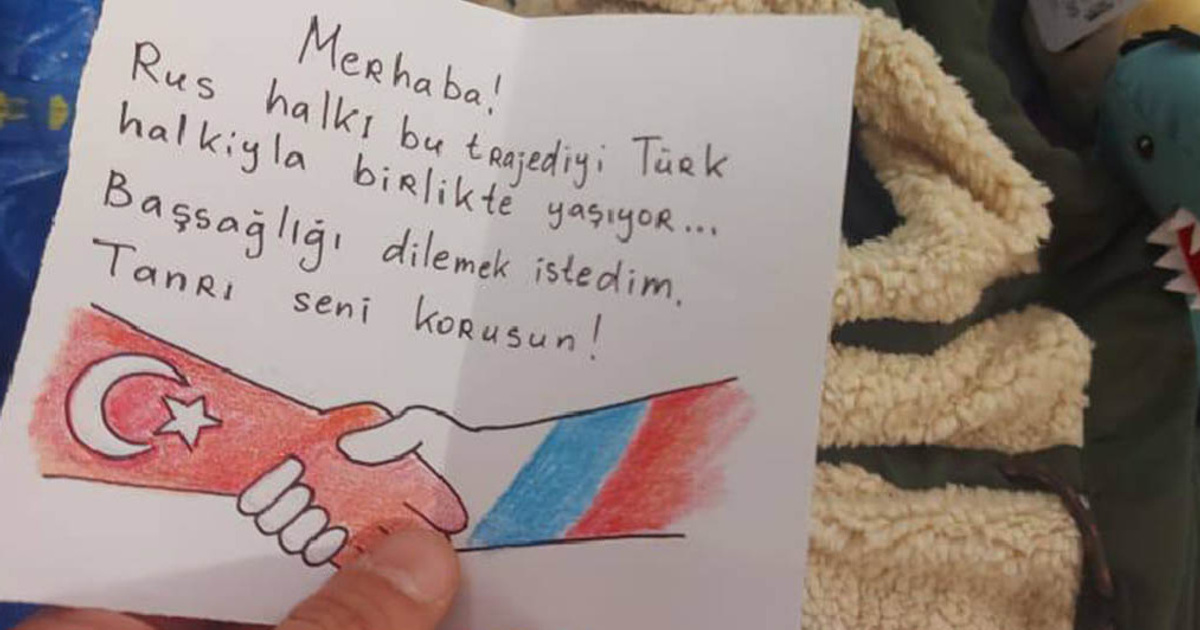 Merhaba!
Rus halkı bu trajediyi Türk
halkiyla birlikte yaşıyor...
Başsağlığı dilemek istedim.
Tanrı seni korusun!